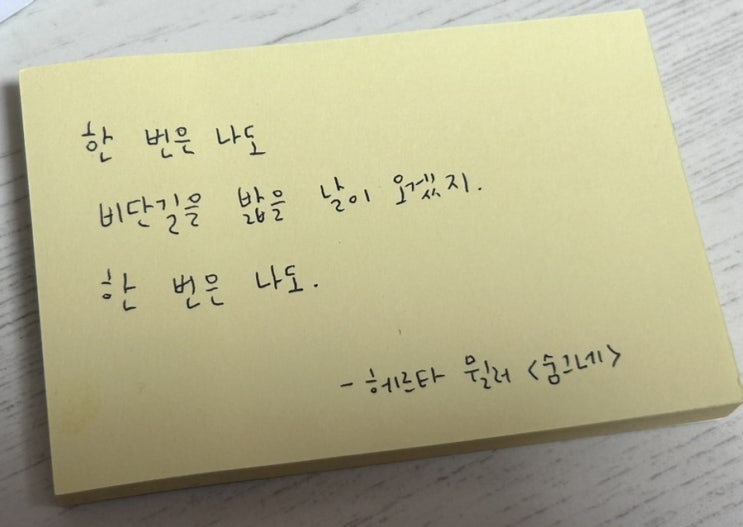 한 번은 나도
비단길을 밟을 날이 오겠지.
한 번은 나도.
- 헤르타 뮐러 <숨그네>